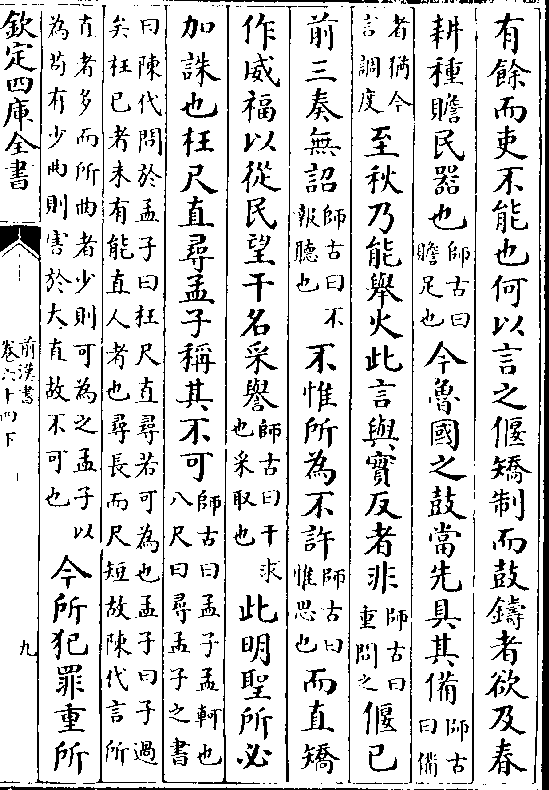 有餘而吏不能也何以言之偃矯制而鼓鑄者欲及春
耕種贍民器也師古曰贍足也今魯國之鼓當先具其備師古曰備
者猶今言調度至秋乃能舉火此言與實反者非師古曰重問之偃已
前三奏無詔師古曰不報聽也不惟所為不許師古曰惟思也而直矯
作威福以從民望干名采譽師古曰干求也采取也此明聖所必
加誅也枉尺直尋孟子稱其不可師古曰孟子孟軻也八尺曰尋孟子之書
曰陳代問於孟子曰枉尺直尋若可為也孟子曰子過
矣枉已者未有能直人者也尋長而尺短故陳代言所
直者多而所曲者少則可為之孟子以
為苟有少曲則害於大直故不可也今所犯罪重所
欽定四庫全書
前漢書
卷六十四下
九